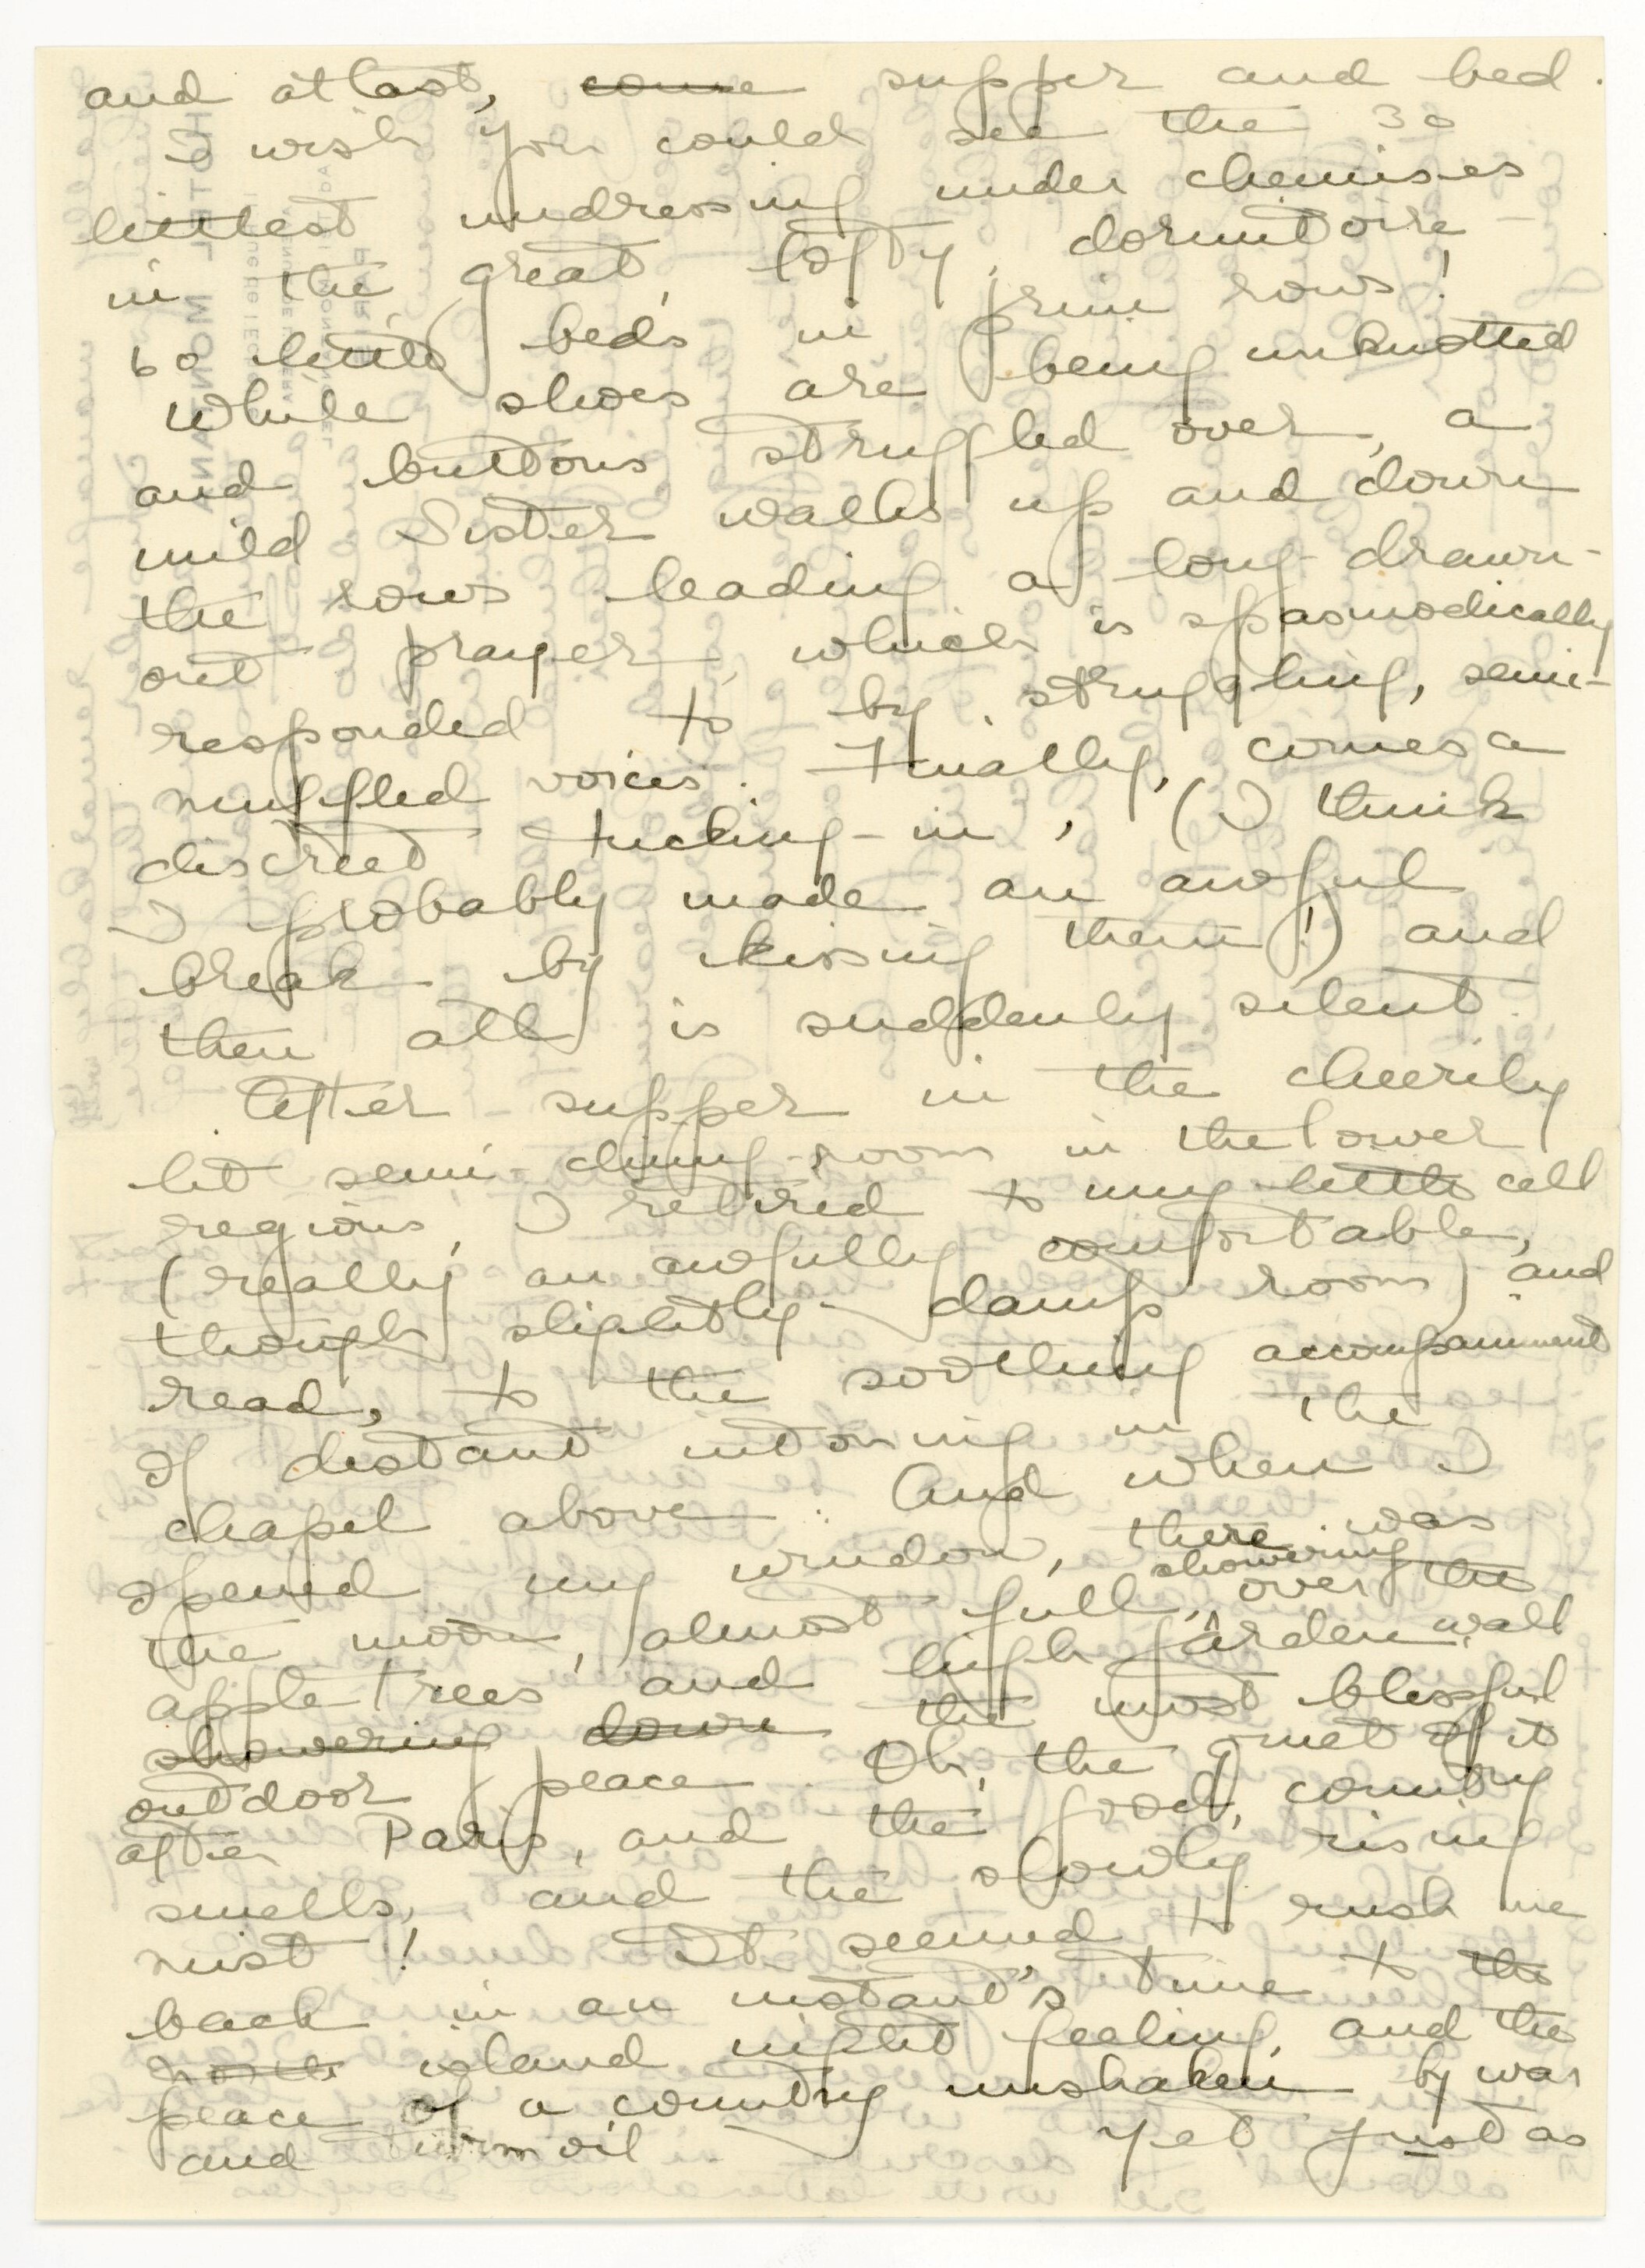 and at last, come supper and bed.
I wish you could see the 30
littlest undressing under chemises
in the great, lofty, dormitoire –
60 little beds in prim rows!
While shoes are being unknotted
and buttons struggled over, a
mild Sister walks up and down
the rows leading a long-drawn-
out prayer, which is spasmodically
responded to by struggling, semi-
muffled voices. Finally, comes a
discreet tucking-in, (I think
I probably made an awful
break by kissing them!) and
then all is suddenly silent.
After supper in the cheerily
lit semi-dining-room in the lower
regions, I retired to my little cell
(really an awfully comfortable,
though slightly damp room) and
read, to the soothing accompaniment
of distant intoning in the
chapel above. And when I
opened my window, there was
the moon, almost full, showering over the
apple trees and high garden wall
showering down the most blissful
outdoor peace. Oh, the quiet of it
after Paris, and the good, country
smells, and the slowly rising
mist! It seemed to rush me
back in an instant's time to the
island night feeling, and the
peace of a country unshaken by war
and turmoil. Yet just as